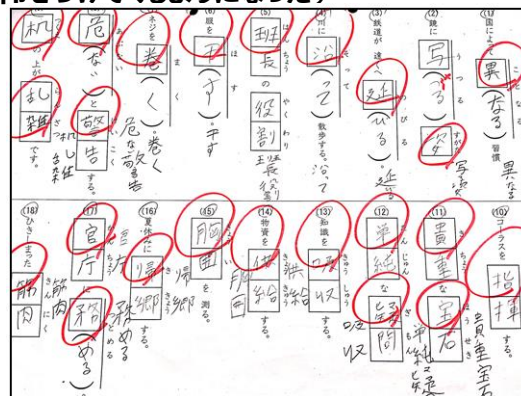 (1)国によって異(なる)習慣 異なる
(2)鏡に写(る)姿 写姿
(3)鉄道が遠くへ延(びる)。延びる
(4)川に沿(って)散歩する。沿って
(5)班長の役割 班長役割
(6)服を干(す)。干す
(7)ネジを巻(く)。巻く
危(ない)と警告する。危な警告
机の上が乱雑です。机 乱雑
(10)コーラスを指揮
(11)貴重な宝石 貴重宝石
(12)単純な疑問 単純
(13)知識を吸収する。吸収
(14)物資を供給する。供給
(15)胸囲を測る。胸囲
(16)夏休みに帰郷する。帰郷
(17)官庁に務(める)。官庁 務める
(18)ひきしまった筋肉 筋肉